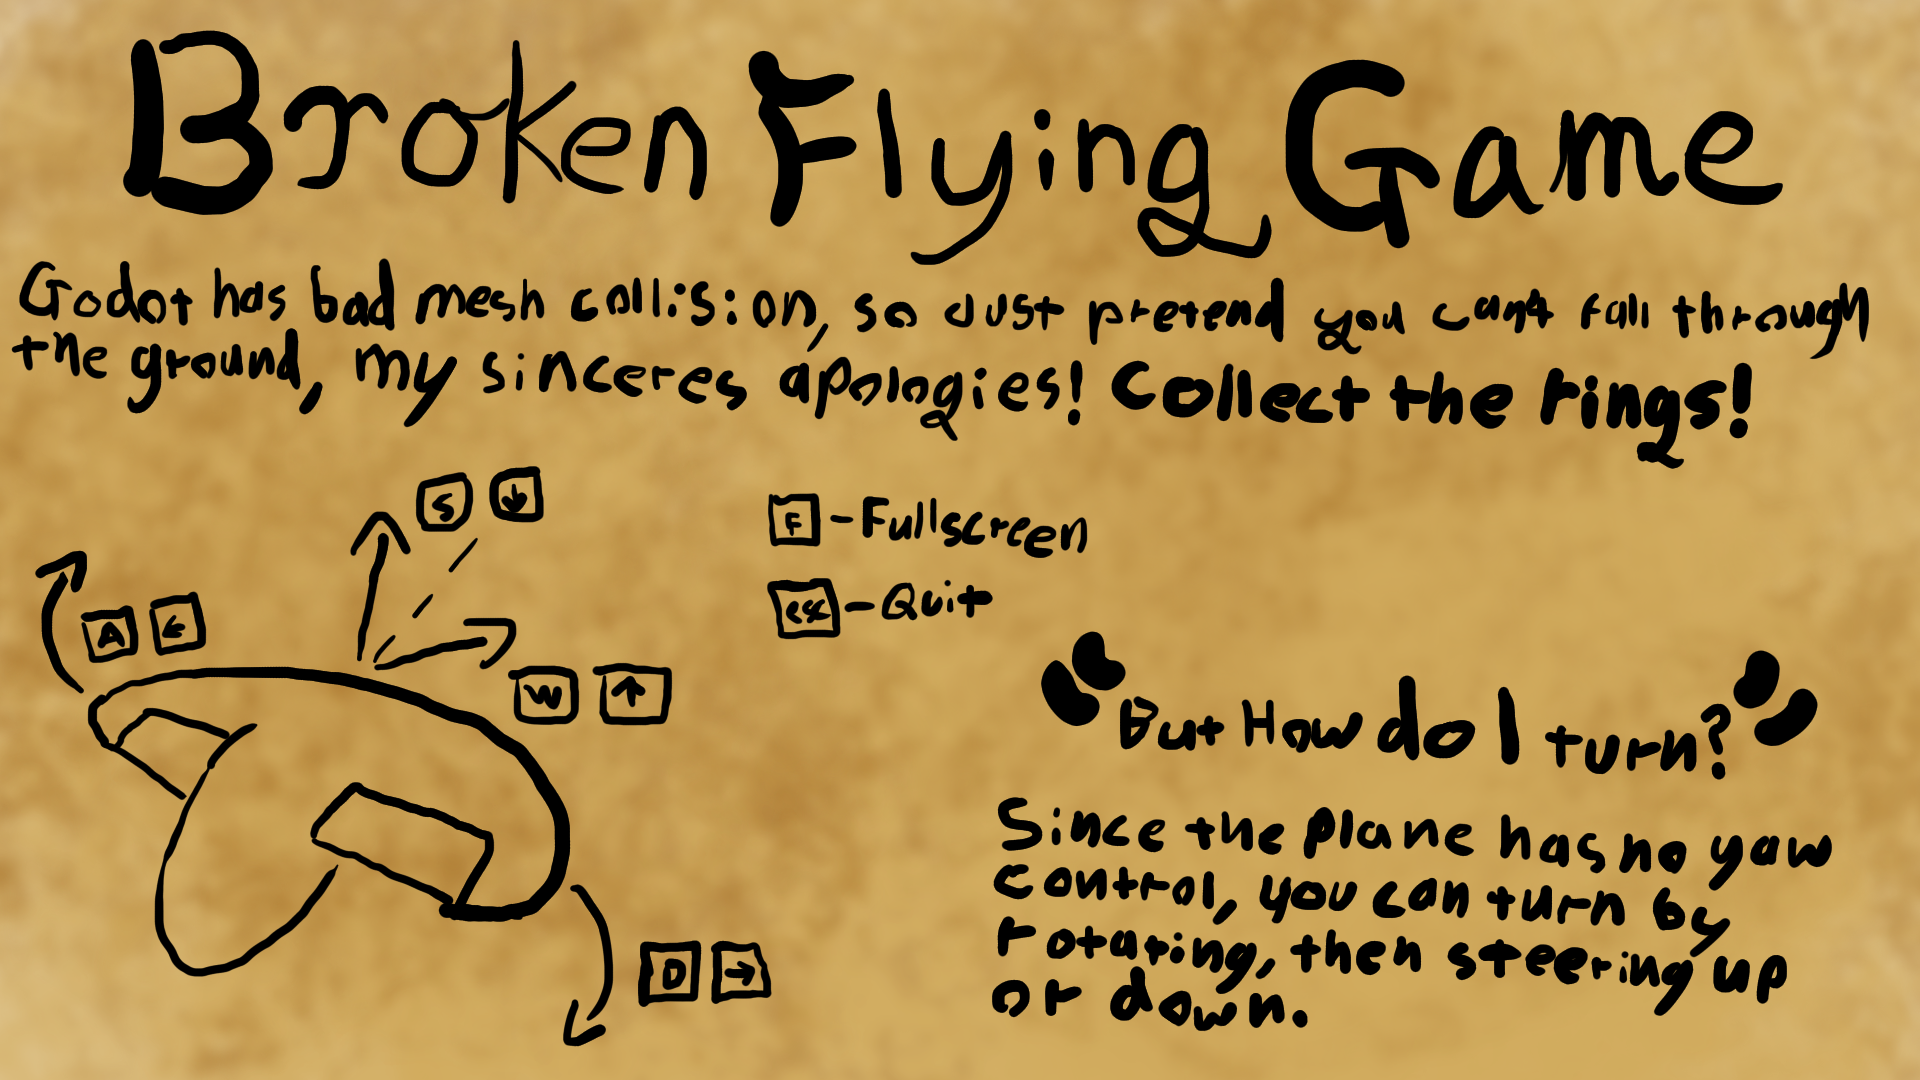 Broken Flying Game
Godot has bad mesh collision, so Just pretend you cant fall through
the ground, my sinceres apologies! Collect the rings!
S ↓
F - Fullscreen
A ←
esc - Quit
W ↑
"But How do I turn?"
Since the plane has no yaw
control, you can turn by
rotating, then steering up
or down.
D →